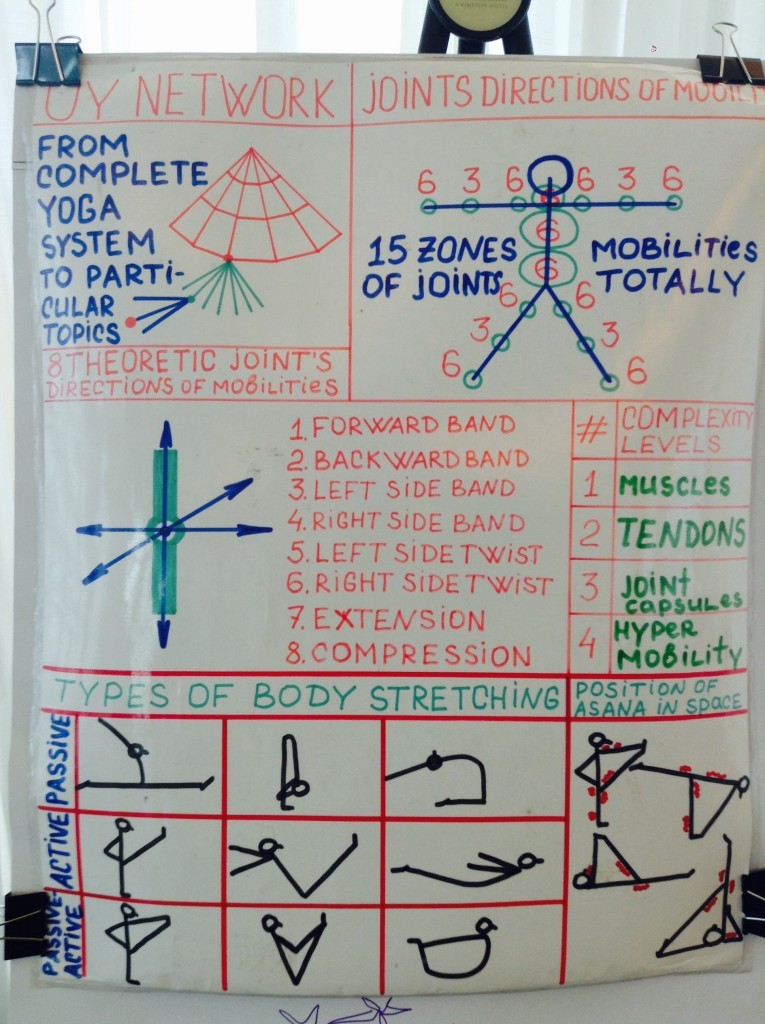 UY NETWORK
FROM
COMPLETE
YOGA
SYSTEM
TO PARTI-
CULAR
TOPICS
JOINTS DIRECTIONS OF MOBILIT
6 3 6 6 3 6
6
6
6
15 ZONES
OF JOINTS
MOBILITIES
TOTALLY
6 6
3 3
6 6
8 THEORETIC JOINT'S
DIRECTIONS OF MOBILITIES
1. FORWARD BAND
2. BACKWARD BAND
3. LEFT SIDE BAND
4. RIGHT SIDE BAND
5. LEFT SIDE TWIST
6. RIGHT SIDE TWIST
7. EXTENSION
8. COMPRESSION
# COMPLEXITY
LEVELS
1 MUSCLES
2 TENDONS
3 JOINT
CAPSULES
4 HYPER
MOBILITY
TYPES OF BODY STRETCHING
POSITION OF
ASANA IN SPACE
PASSIVE
ACTIVE
PASSIVE-
ACTIVE